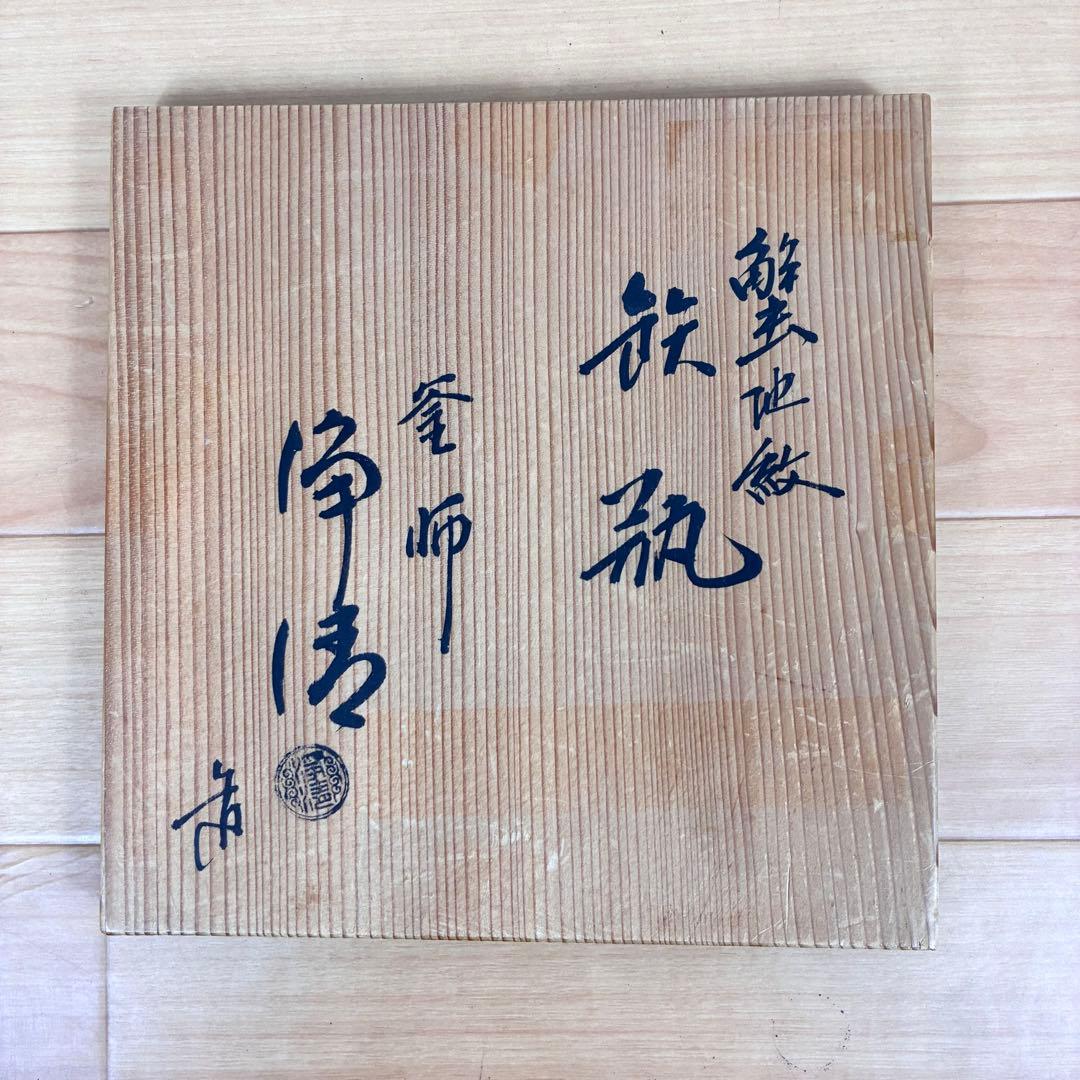 蟹地紋
鉄瓶
釜師
浄清